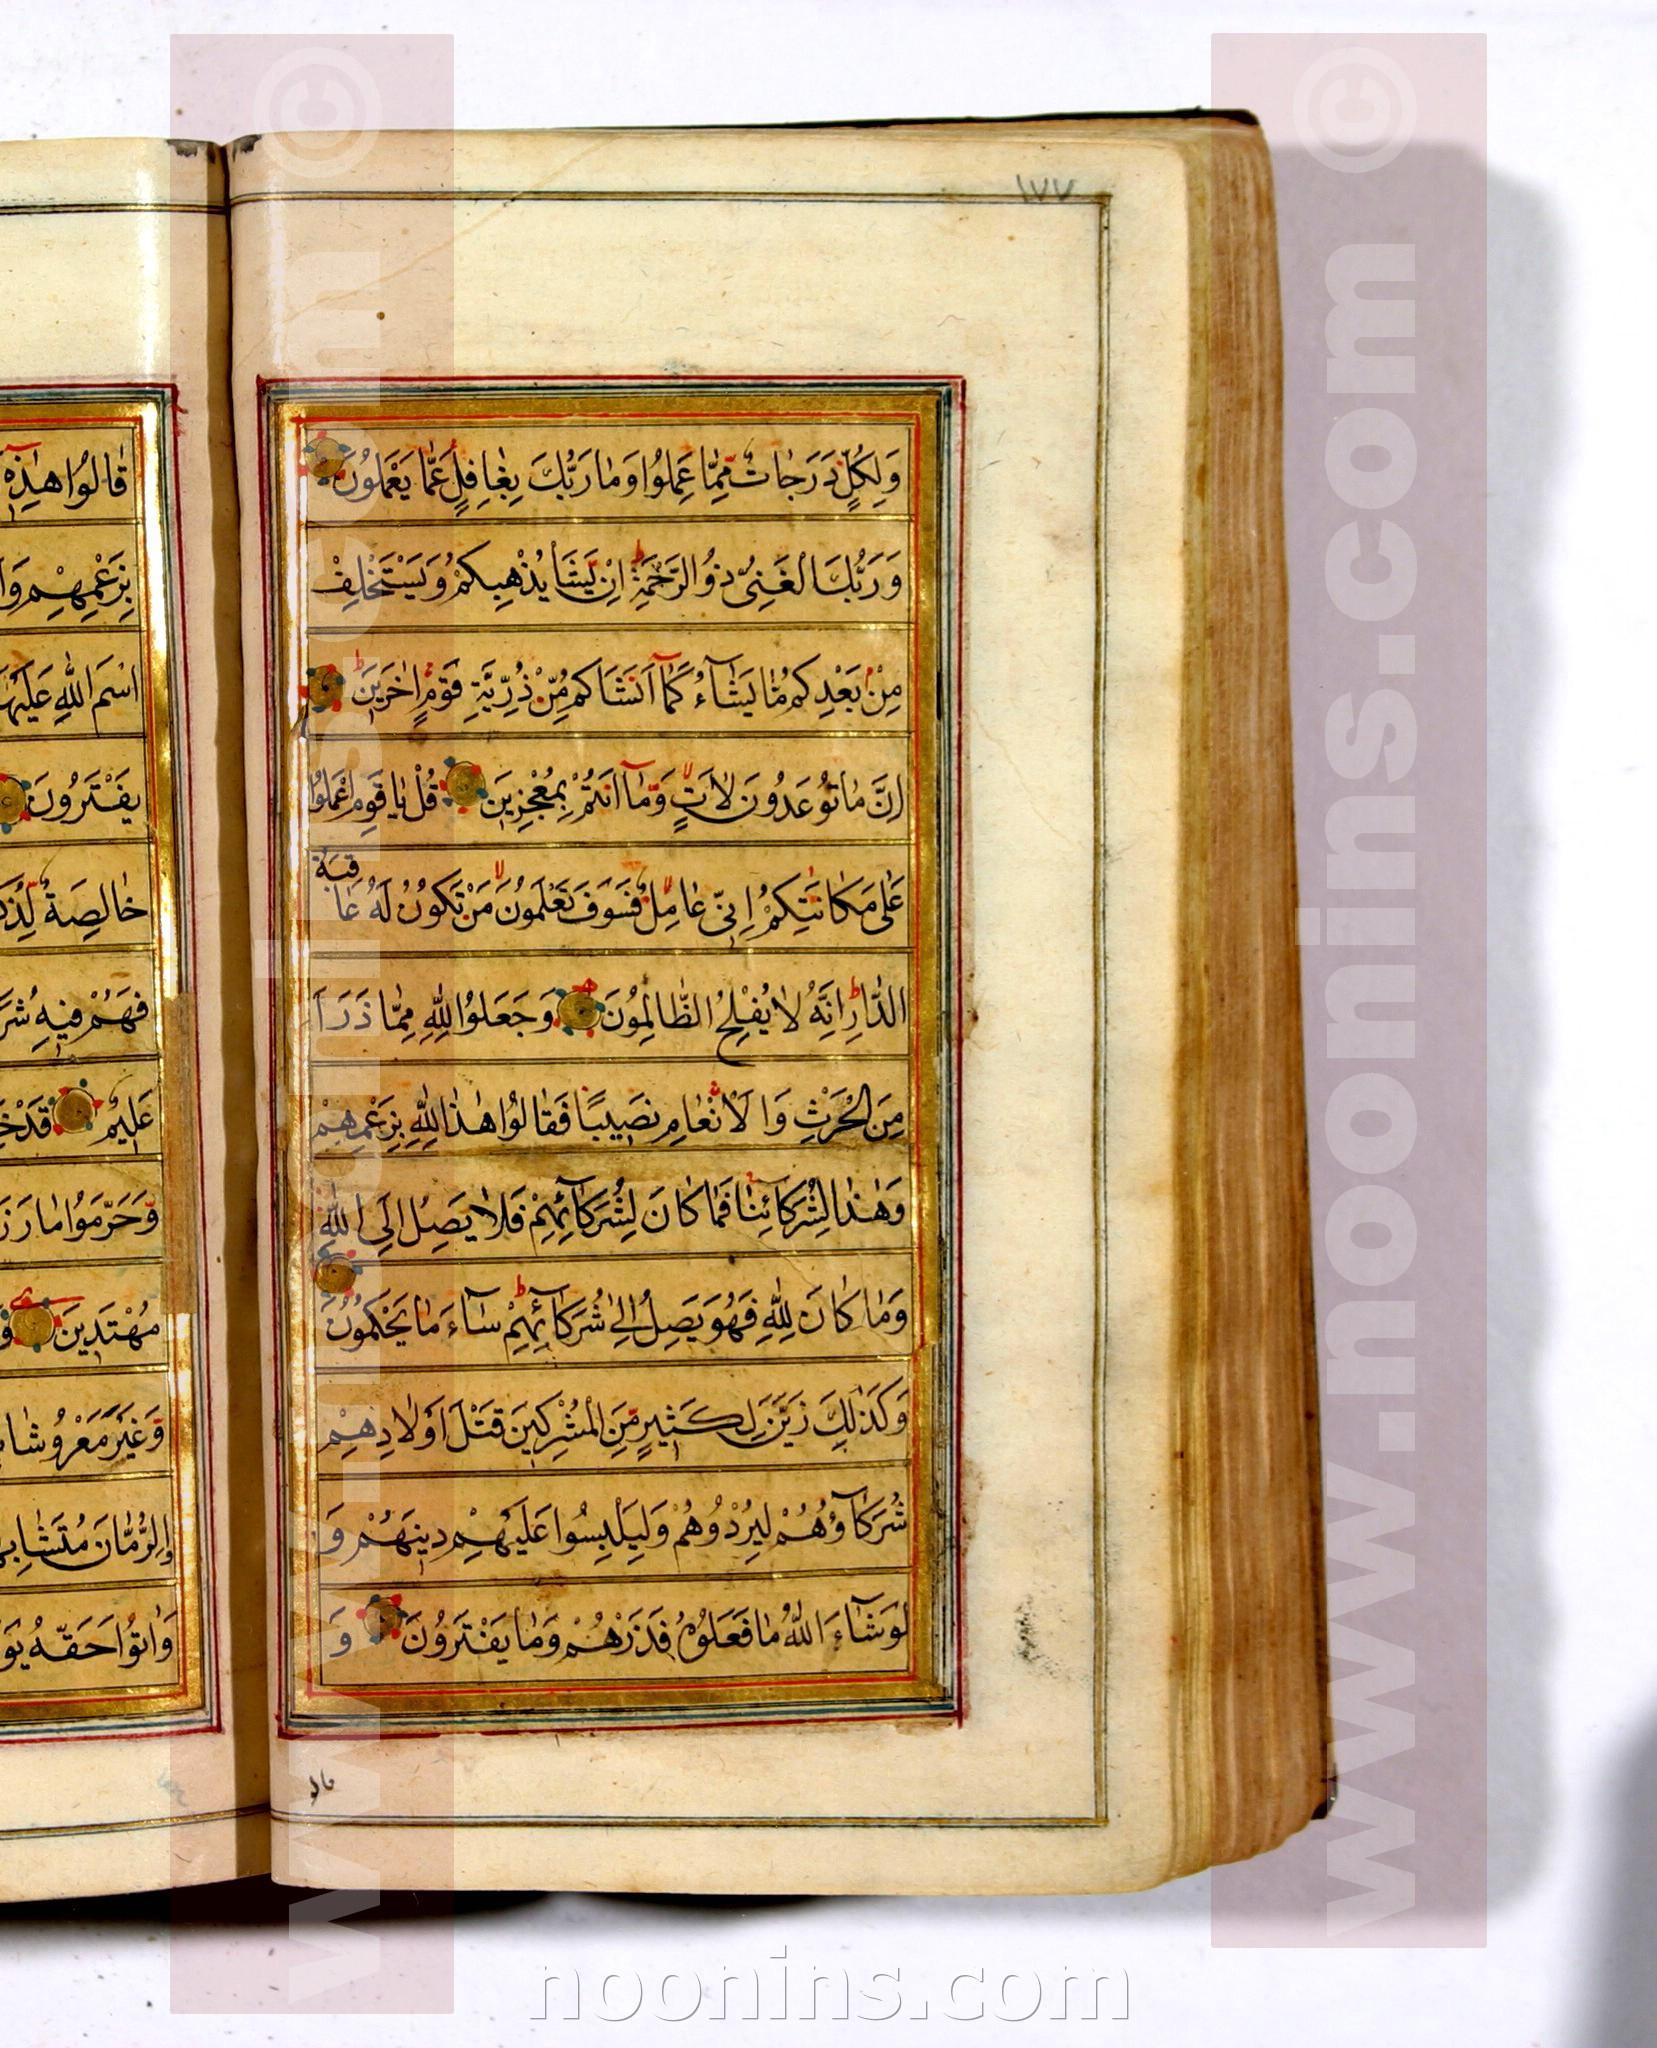 ١٧٧
وَلِكُلٍّ دَرَجَاتٌ مِمَّا عَمِلُوا وَمَا رَبُّكَ بِغَافِلٍ عَمَّا يَعْمَلُونَ
وَرَبُّكَ الْغَنِىُّ ذُو الرَّحْمَةِ اِنْ يَشَأْ يُذْهِبْكُمْ وَيَسْتَخْلِفْ
مِنْ بَعْدِكُمْ مَّا يَشَآءُ كَمَآ اَنْشَاَكُمْ مِّنْ ذُرِّيَّةِ قَوْمٍ اٰخَرِيَن
اِنَّ مَا تُوعَدُونَ لَاٰتٍ وَّمَآ اَنْتُمْ بِمُعْجِزِينَ قُلْ يَا قَوْمِ اعْمَلُوا
عَلٰى مَكَانَتِكُمْ اِنِّى عَامِلٌ فَسَوْفَ تَعْلَمُونَ مَنْ تَكُونُ لَهُ عَاقِبَةُ
الدَّارِ اِنَّهُ لَا يُفْلِحُ الظَّالِمُونَ وَجَعَلُوا لِلّٰهِ مِمَّا ذَرَاَ
مِنَ الْحَرْثِ وَالْاَنْعَامِ نَصِيبًا فَقَالُوا هٰذَا لِلّٰهِ بِزَعْمِهِمْ
وَهٰذَا لِشُرَكَآئِنَا فَمَا كَانَ لِشُرَكَآئِهِمْ فَلَا يَصِلُ اِلَى اللّٰهِ
وَمَا كَانَ لِلّٰهِ فَهُوَ يَصِلُ اِلٰى شُرَكَآئِهِمْ سَآءَ مَا يَحْكُمُونَ
وَكَذٰلِكَ زَيَّنَ لِكَثِيرٍ مِّنَ الْمُشْرِكِينَ قَتْلَ اَوْلَادِهِمْ
شُرَكَآؤُهُمْ لِيُرْدُوهُمْ وَلِيَلْبِسُوا عَلَيْهِمْ دِينَهُمْ وَ
لَوْ شَآءَ اللّٰهُ مَا فَعَلُوهُ فَذَرْهُمْ وَمَا يَفْتَرُونَ وَ
قَالُوا هٰذِهٖ
بِزَعْمِهِمْ
اسْمَ اللّٰهِ عَلَيْهَا
يَفْتَرُونَ
خَالِصَةٌ
فَهُمْ فِيهِ
عَلِيمٌ قَدْ
وَّحَرَّمُوا مَا
مُهْتَدِينَ
وَّغَيْرَ
وَالرُّمَّانَ
وَاٰتُوا حَقَّهُ
www.noonins.com ©
www.noonins.com ©
noonins.com